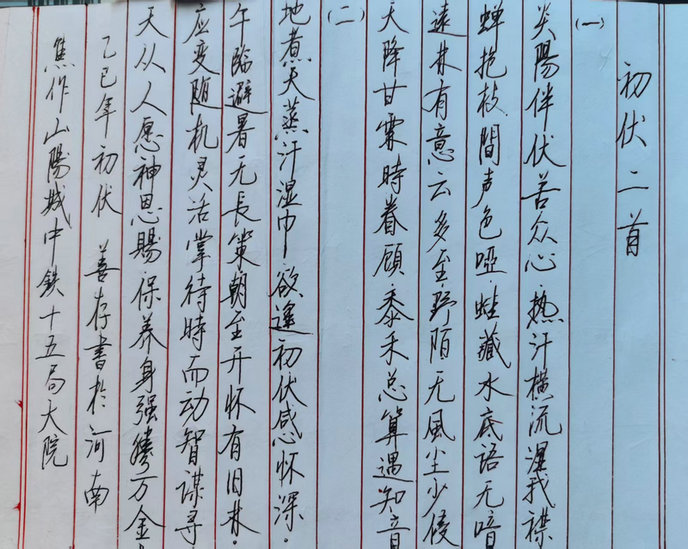 初伏二首
(一)
炎陽伴伏苦众心.热汗横流湿我襟
蝉抱枝間声色哑蛙藏水底語无喑
遠林有意云多至.野陌无風尘少侵
天降甘霖時眷顧.黍禾总算遇知音
(二)
地煮天蒸汗湿巾.欲逢初伏感怀深.
午臨避暑无長策.朝至开怀有旧林.
应变随机灵活掌待時而动智谋寻
天从人愿神恩賜.保养身强勝万金.
乙巳年初伏 善存書於河南
焦作山陽城中铁十五局大院